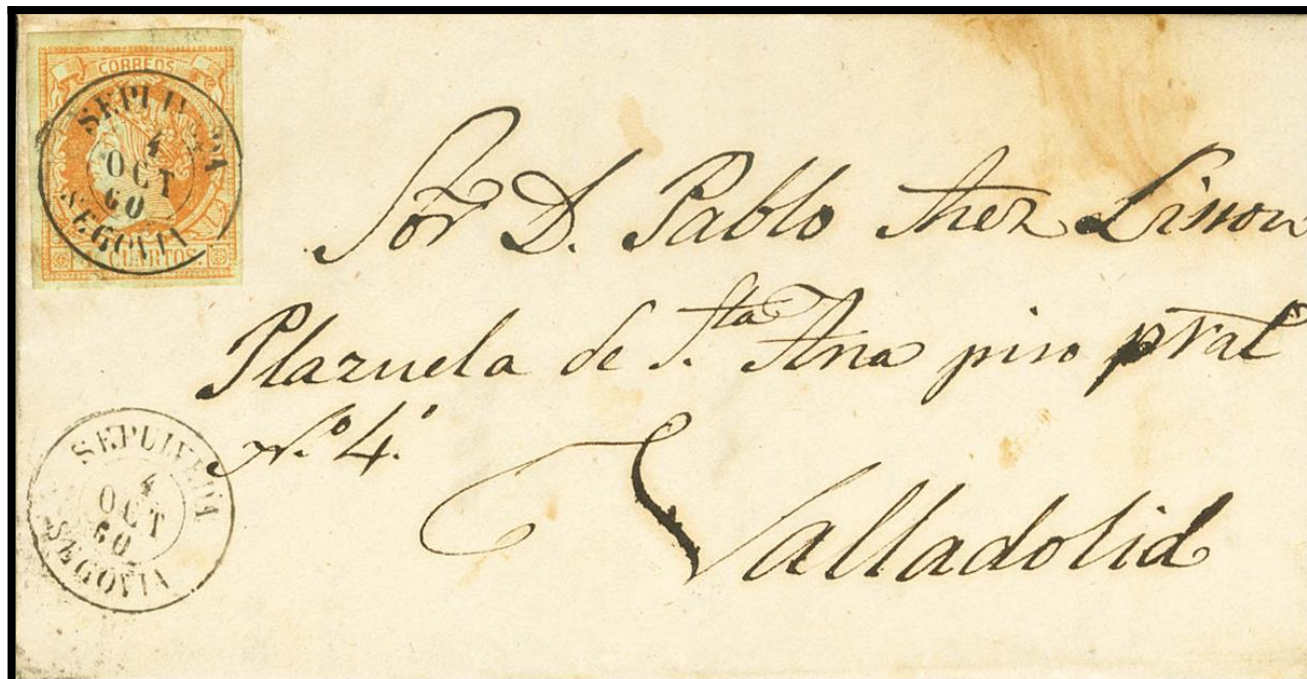 CORREOS
SEPULVEDA
4
OCT
60
SEGOVIA
CUARTOS.
Sor D. Pablo
Plazuela de Sta Ana piso pral
No. 4.
Valladolid
SEPULVEDA
4
OCT
60
SEGOVIA